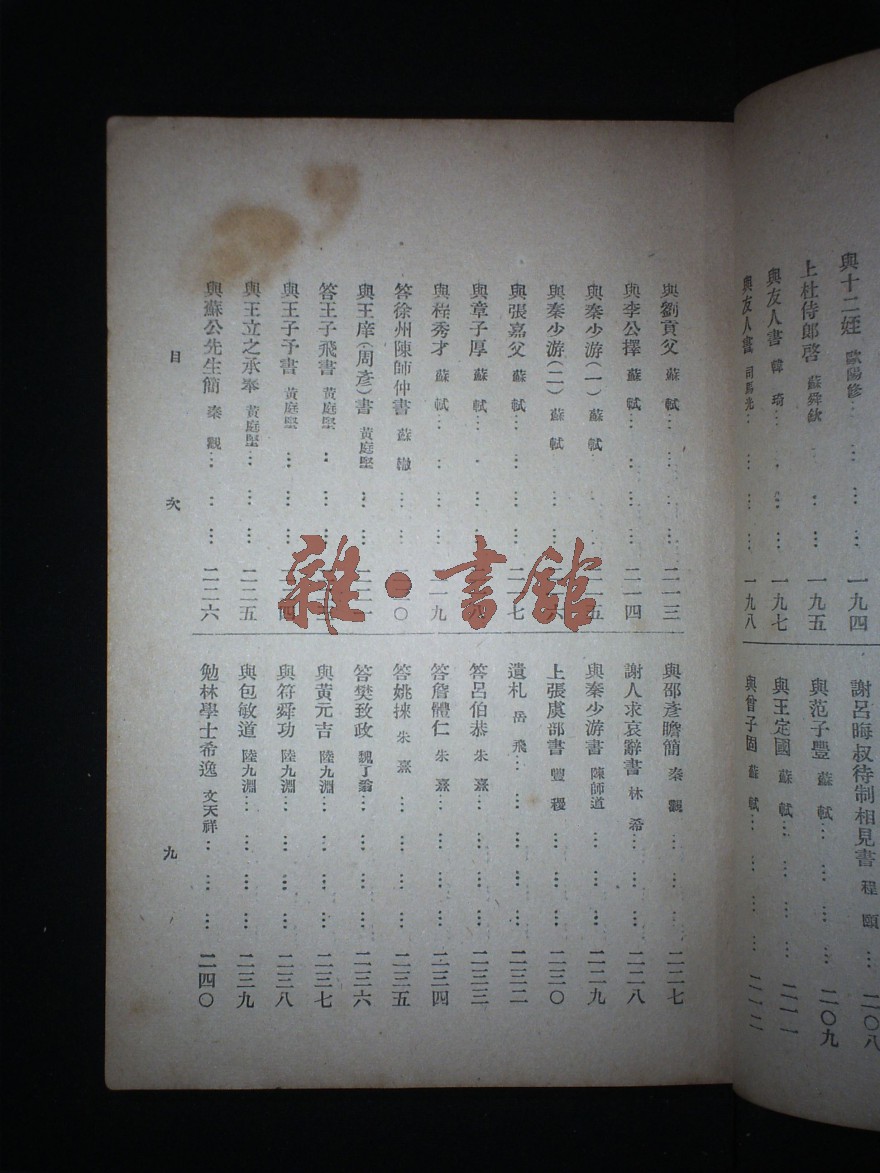 與十二姪 歐陽修 … … … 一九四
上杜侍郎啓 蘇舜欽 … … … 一九五
與友人書 韓琦 … … … 一九七
與友人書 司馬光 … … … 一九八
謝呂晦叔待制相見書 程頤 … 二〇八
與范子豐 蘇軾 … … … 二〇九
與王定國 蘇軾 … … … 二一一
與曾子固 蘇軾 … … … 二一二
與劉貢父 蘇軾 … … … 二一三
與李公擇 蘇軾 … … … 二一四
與秦少游(一) 蘇軾 … … … 五
與秦少游(二) 蘇軾 … … … 六
與張嘉父 蘇軾 … … … 二一七
與章子厚 蘇軾 … … …
與程秀才 蘇軾 … … … 二一九
答徐州陳師仲書 蘇轍 … … … 〇
與王庠(周彥)書 黃庭堅 … … 二二一
答王子飛書 黃庭堅 … … …
與王子予書 黃庭堅 … … … 四
與王立之承奉 黃庭堅 … … … 二二五
與蘇公先生簡 秦觀 … … … 二二六
與邵彥瞻簡 秦觀 … … … … 二二七
謝人求哀辭書 林希 … … … 二二八
與秦少游書 陳師道 … … … 二二九
上張虞部書 豐稷 … … … 二三〇
遺札 岳飛 … … … … … 二三二
答呂伯恭 朱熹 … … … … 二三三
答詹體仁 朱熹 … … … … 二三四
答姚揀 朱熹 … … … … 二三五
答樊致政 魏了翁 … … … … 二三六
與黃元吉 陸九淵 … … … … 二三七
與符舜功 陸九淵 … … … … 二三八
與包敏道 陸九淵 … … … … 二三九
勉林學士希逸 文天祥 … … … 二四〇
目 次 九
雜·書館